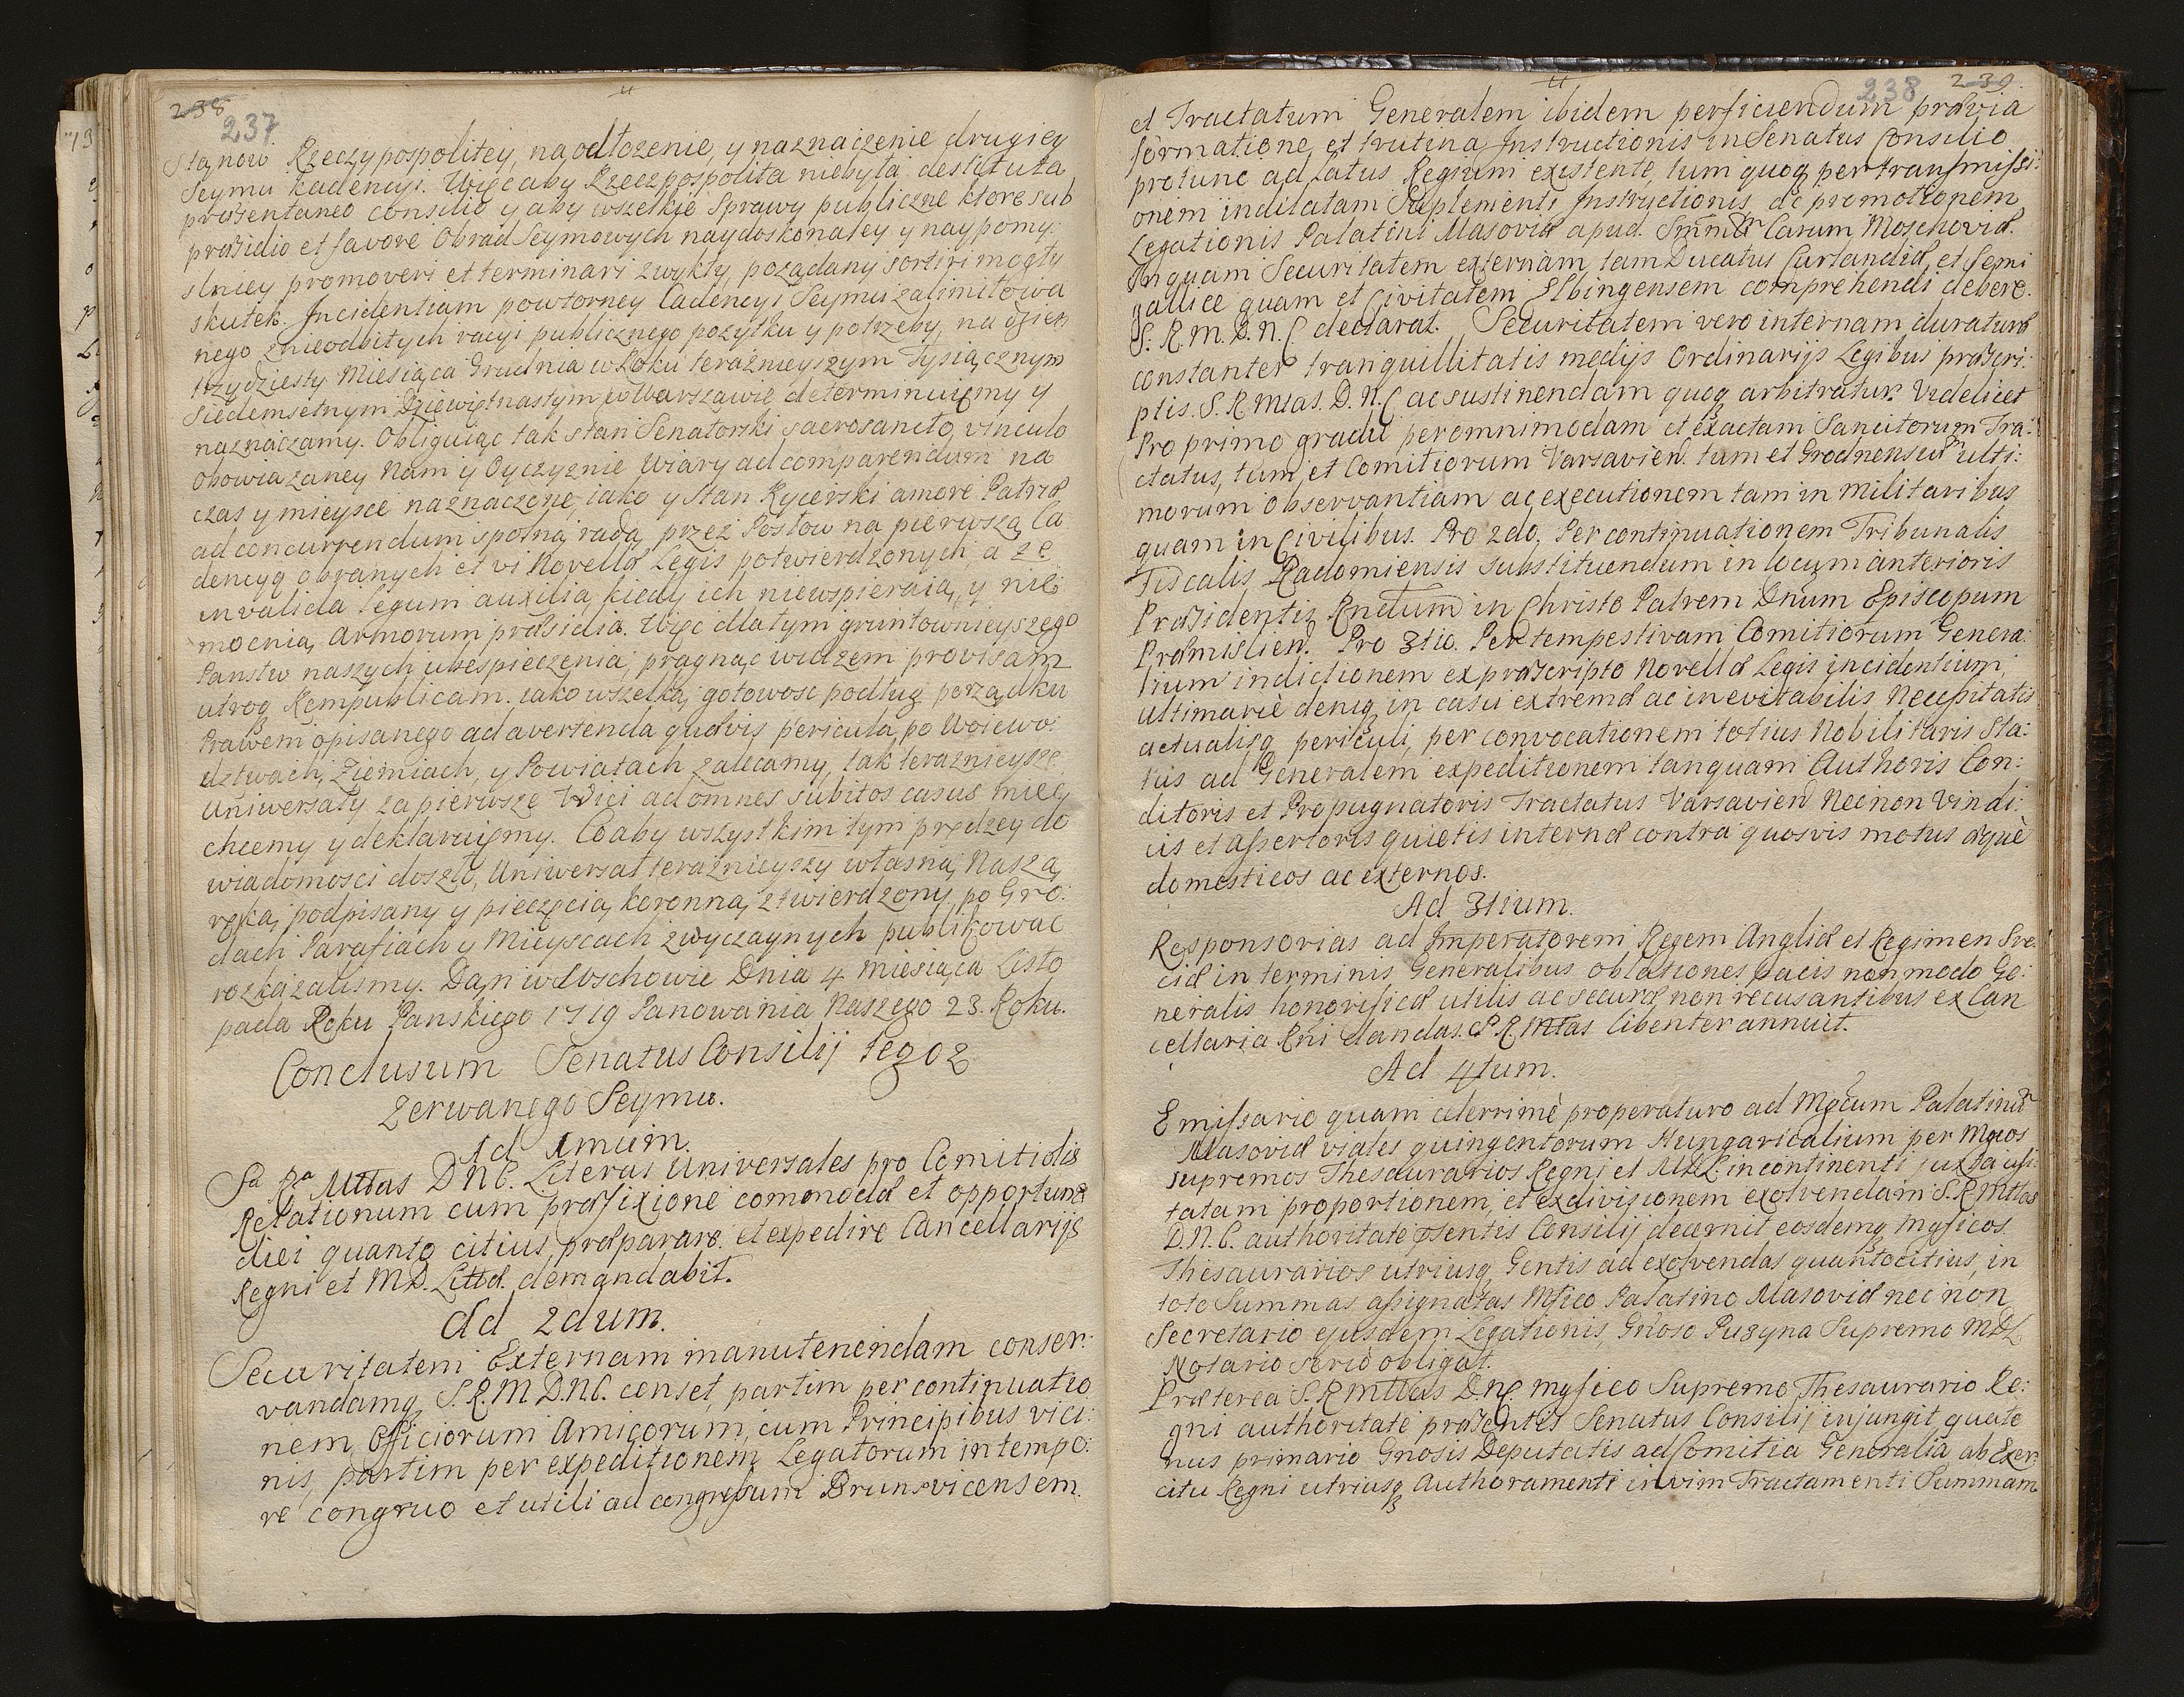 238
237
Stanow Rzeczypospolitey, na odłozenie, y naznaczenie drugiey
Seymu kadencyi. Więc aby Rzeczpospolita niebyła destituta
præsentaneo consilio y aby wszelkie Sprawy publiczne ktore sub
præsidio et favore Obrad Seymowych naydoskonaley y naypomy:
slniey promoveri et terminari zwykły, pożądany sortiri mogły
skutek. Incidentiam powtorney Cadencyi Seymu zalimitowa
nego z nieodbitych racyi publicznego pożytku y potrzeby, na dzien
trzydziesty Miesiąca Grudnia w Roku teraznieyszym Tysiącznym
Siedemsetnym Dziewiętnastym w Warszawie determinuięmy y
naznaczamy. Obliguiąc tak stan Senatorski sacrosancto vinculo
obowiązaney Nam y Oyczyznie Wiary ad comparendum na
czas y mieysce naznaczone, iako y Stan Rycerski amore Patriæ,
ad concurrendum społną radą przez Posłow na pierwszą Ca
dencyą obranych et vi Novellæ Legis potwierdzonych a że
invalida legum auxilia, kiedy ich niewspieraią, y nie
mocnią, Armorum præsidia. Więc dla tym gruntownieyszego
Panstw naszych ubespieczenia, pragnąc widzem provisam
utroq Rempublicam. iako wszelką gotowosc podług porządku
Prawem opisanego ad avertenda quævis pericula po Woiewo:
dztwach, Ziemiach, y Powiatach zalecamy, tak teraznieysze
Uniwersały za pierwsze Wici ad omnes subitos casus miec
chcemy y deklaruięmy. Co aby wszystkim tym prędzey do
wiadomosci doszło, Uniwersał teraznieyszy własną Naszą
ręką podpisany y pieczęcią koronną ztwierdzony, po Gro:
dach Parafiach y Mieyscach zwyczaynych publikowac
rozkazalismy. Dan w Wschowie Dnia 4 miesiąca Listo
pada Roku Panskiego 1719 Panowania Naszego 23. Roku.
Conclusum Senatus Consilij tegoz
Zerwanego Seymu.
Ad 1mum.
Sa Ra Mttas D N C. Literas Universales pro Comitiolis
Relationum cum præfixione comodæ et opportunæ
diei quanto citius, præparare. et expedire Cancellarijs
Regni et M D. Littæ. demandabit.
Ad 2dum.
Securitatem Externam manutenendam conser:
vandamq S. R. M. D. N C. censet, partim per continuatio
nem, Officiorum Amicorum, cum Principibus vici:
nis, partim per expeditionem Legatorum in tempo:
re congruo et utili ad congressum Brunsvicensem.
238
239.
et Tractatum Generalem ibidem perficiendum prævia
formatione, et trutina Instructionis in Senatus Consilio
protunc ad Latus Regium existente, tum quoq per transmissi:
onem inditatam Suplementi Instructionis, ac promotionem
Legationis Palatini Masoviæ apud. Smum Carum Moschoviæ.
Inquam Securitatem externam, tam Ducatus Curlandiæ, et Semi
galliæ quam et Civitatem Elbingensem comprehendi debere.
S: R. M. D. N. C declarat. Securitatem vero internam duraturæ
constanter tranquillitatis medijs Ordinarijs Legibus præscri:
ptis. S. R Mtas. D. N. C ac sustinendam quoq arbitratur. Videlicet
Pro primo gradu per omnimodam et exactam Sancitorum Tra:
ctatus, tum, et Comitiorum Varsavien. tum et Grodnensiu ulti:
morum observantiam ac executionem tam in Militaribus
quam in Civilibus. Pro 2do, Per continuationem Tribunalis
Fiscalis Radomiensis substituendum in locum anterioris
Præsidentis Rndum in Christo Patrem Dnum Episcopum
Præmislien. Pro 3tio. Per tempestivam Comitiorum Genera:
lium indictionem ex præscripto Novellæ Legis incidentium;
ultimariè deniq in casu extremæ ac inevitabilis Necessitatis
actualisq periculi, per convocationem totius Nobilitaris Sta:
tus ad Generalem expeditionem tanquam Authoris Con:
ditoris et Propugnatoris Tractatus Varsavien Necnon Vindi:
cis et Assertoris quietis internæ contra quosvis motus æquè
domesticos ac externos.
Ad 3tium.
Responsorias ad Imperatorem Regem Angliæ et Regimen Sve
ciæ in terminis Generalibus oblationes pacis non modo Ge:
neralis honorificæ utilis ac securæ non recusantibus ex Can
cellaria Rni dandas. S R Mtas libenter annuit.
Ad 4tum.
Emissario quam celerrimè properaturo ad Mgcum Palatinu
Masoviæ viales quingentorum Hungaricalium per Mgcos
supremos Thesaurarios Regni et M D L. incontinenti juxta usi
tatam proportionem, et exdivisionem exolvendam S. R Mttas
D. N. C. authoritate psentis Consilij decernit eosdemq Mgficos
Thesaurarios utriusq Gentis ad exolvendas quantocitius, in
toto Summas assignatas Mfico Palatino Masoviæ nec non
Secretario ejusdem Legationis, Gnoso Puzyna Supremo M D L
Notario serio obligat.
Præterea S. R Mttas D N C Mgfico Supremo Thesaurario Re:
gni authoritate præsentis Senatus Consilij injungit, quate
nus primario Gnosis Deputatis ad Comitia Generalia ab Exer
citu Regni utriusq Authoramenti in vim Tractamenti Summam